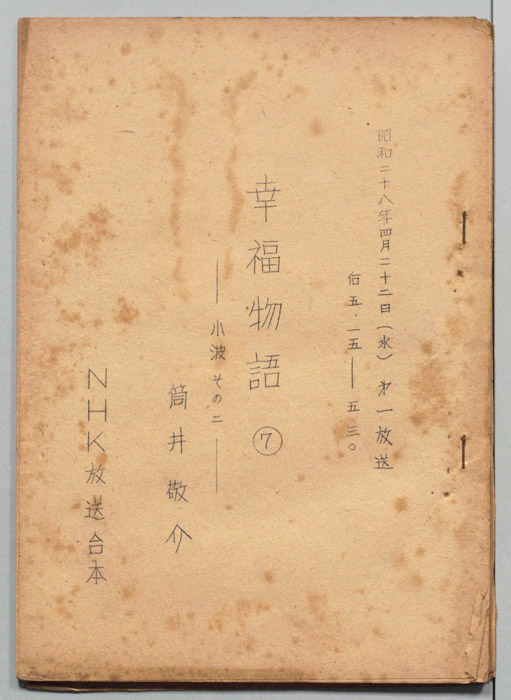 昭和二十八年四月二十二日（水）第一放送
后五.一五──五.三〇
幸福物語 ⑦
──小波 その二──
筒井敬介
NHK放送台本